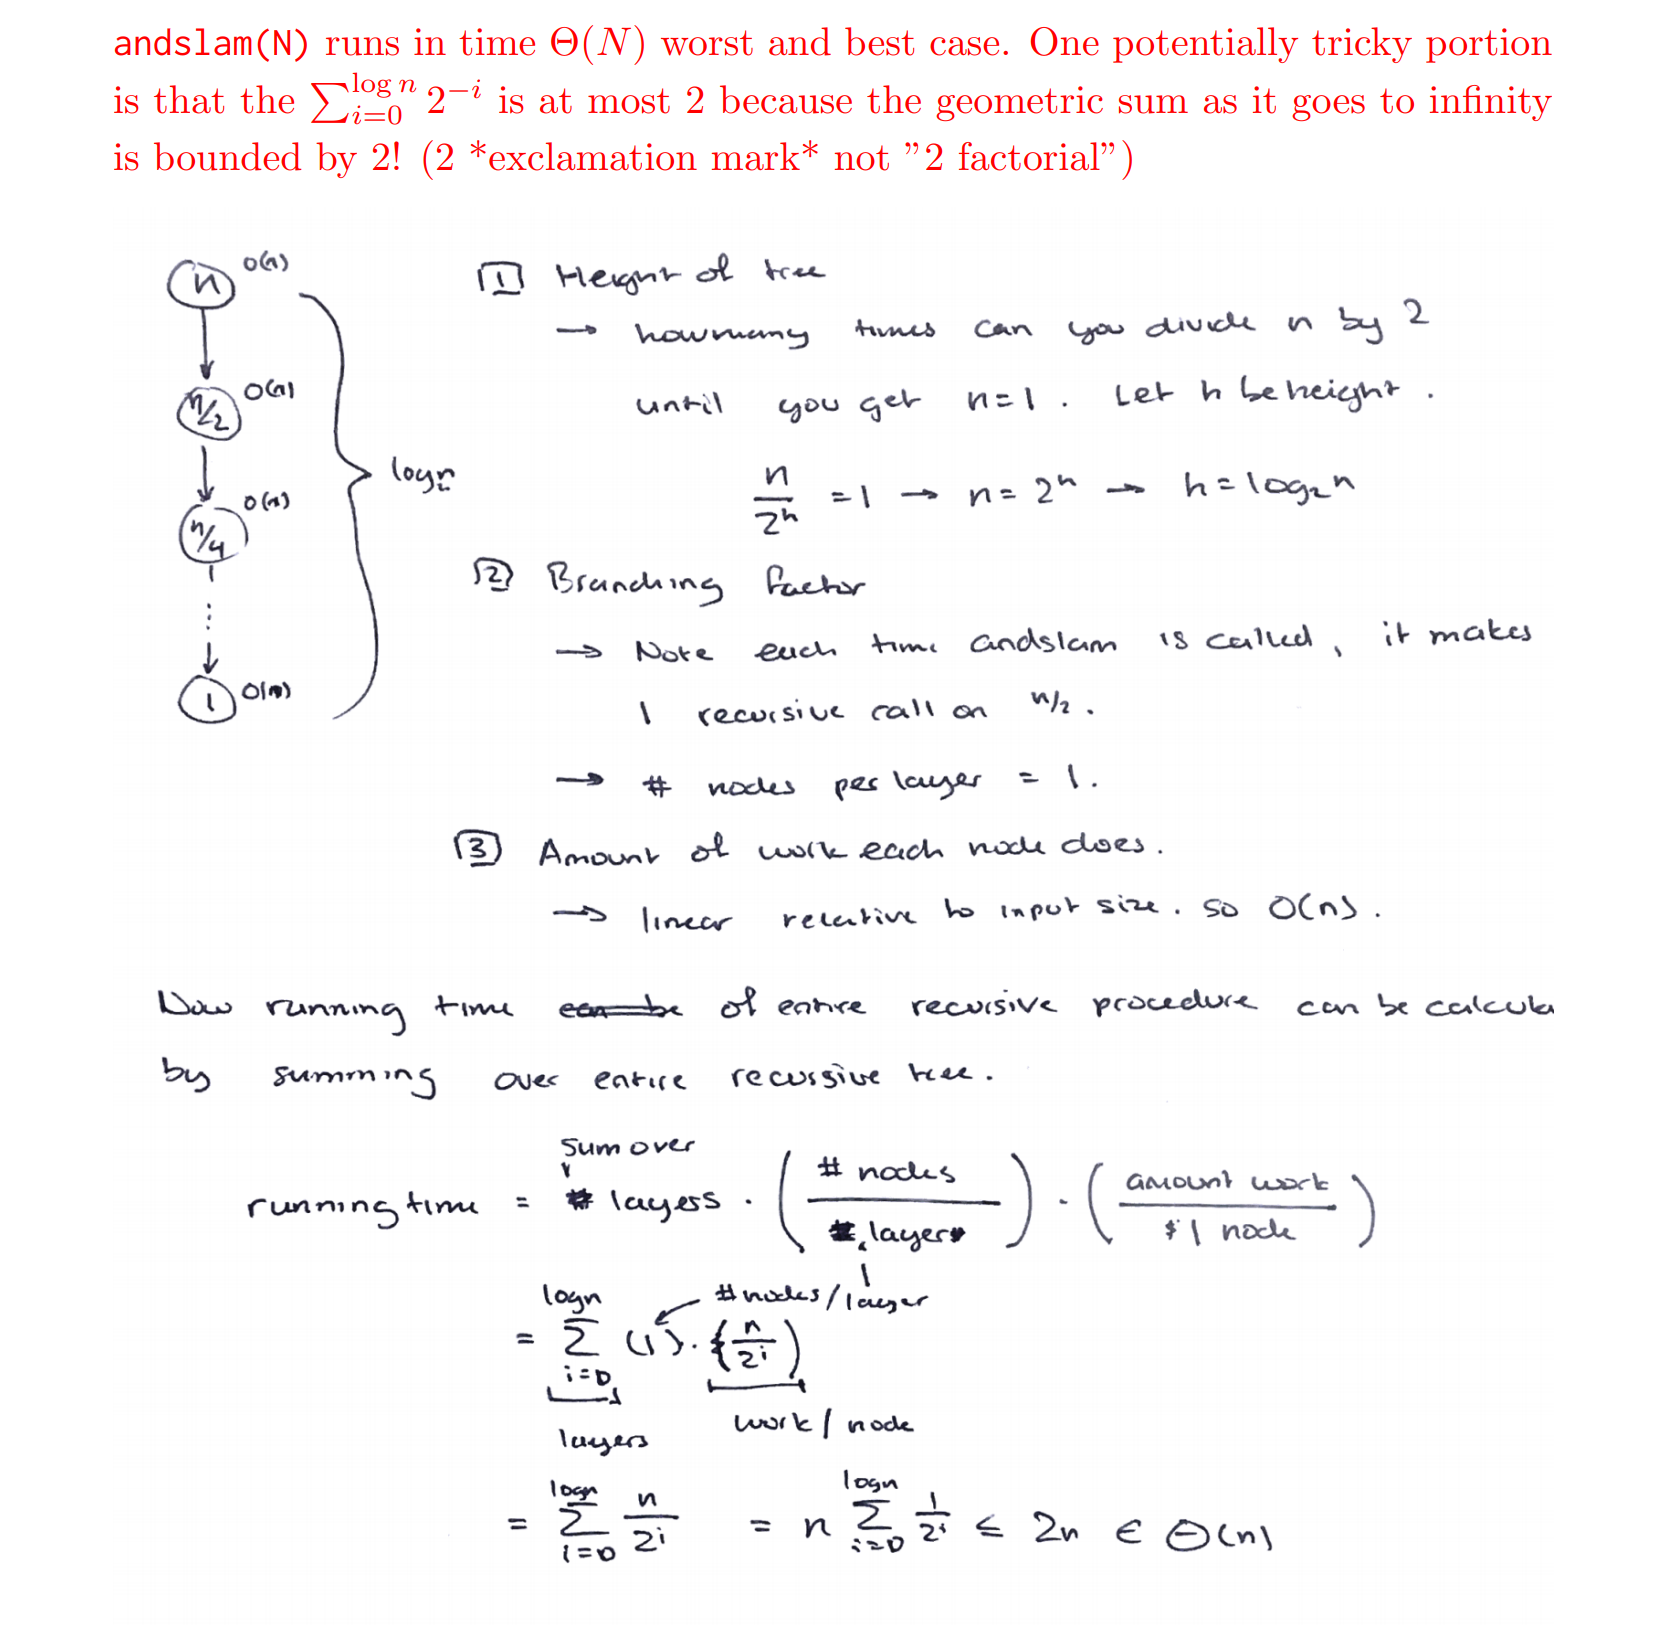 andslam(N) runs in time Θ(N) worst and best case. One potentially tricky portion
is that the ∑_{i=0}^{log n} 2^{−i} is at most 2 because the geometric sum as it goes to infinity
is bounded by 2! (2 *exclamation mark* not ”2 factorial”)
n O(n)
n/2 O(n)
n/4 O(n)
⋮
1 O(n)
logn
1 Height of tree
→ how many times can you divide n by 2
until you get n=1. Let h be height.
n/2^h = 1 → n = 2^h → h = log₂n
2 Branching factor
→ Note each time andslam is called, it makes
1 recursive call on n/2.
→ # nodes per layer = 1.
3 Amount of work each node does.
→ linear relative to input size. so O(n).
Now running time can be of entire recursive procedure can be calcula
by summing over entire recursive tree.
sum over
running time = # layers · (# nodes / layer) · (amount work / 1 node)
#nodes/layer
= ∑_{i=0}^{logn} (1) · (n/2^i)
layers
work / node
= ∑_{i=0}^{logn} n/2^i = n ∑_{i=0}^{logn} 1/2^i ≤ 2n ∈ Θ(n)